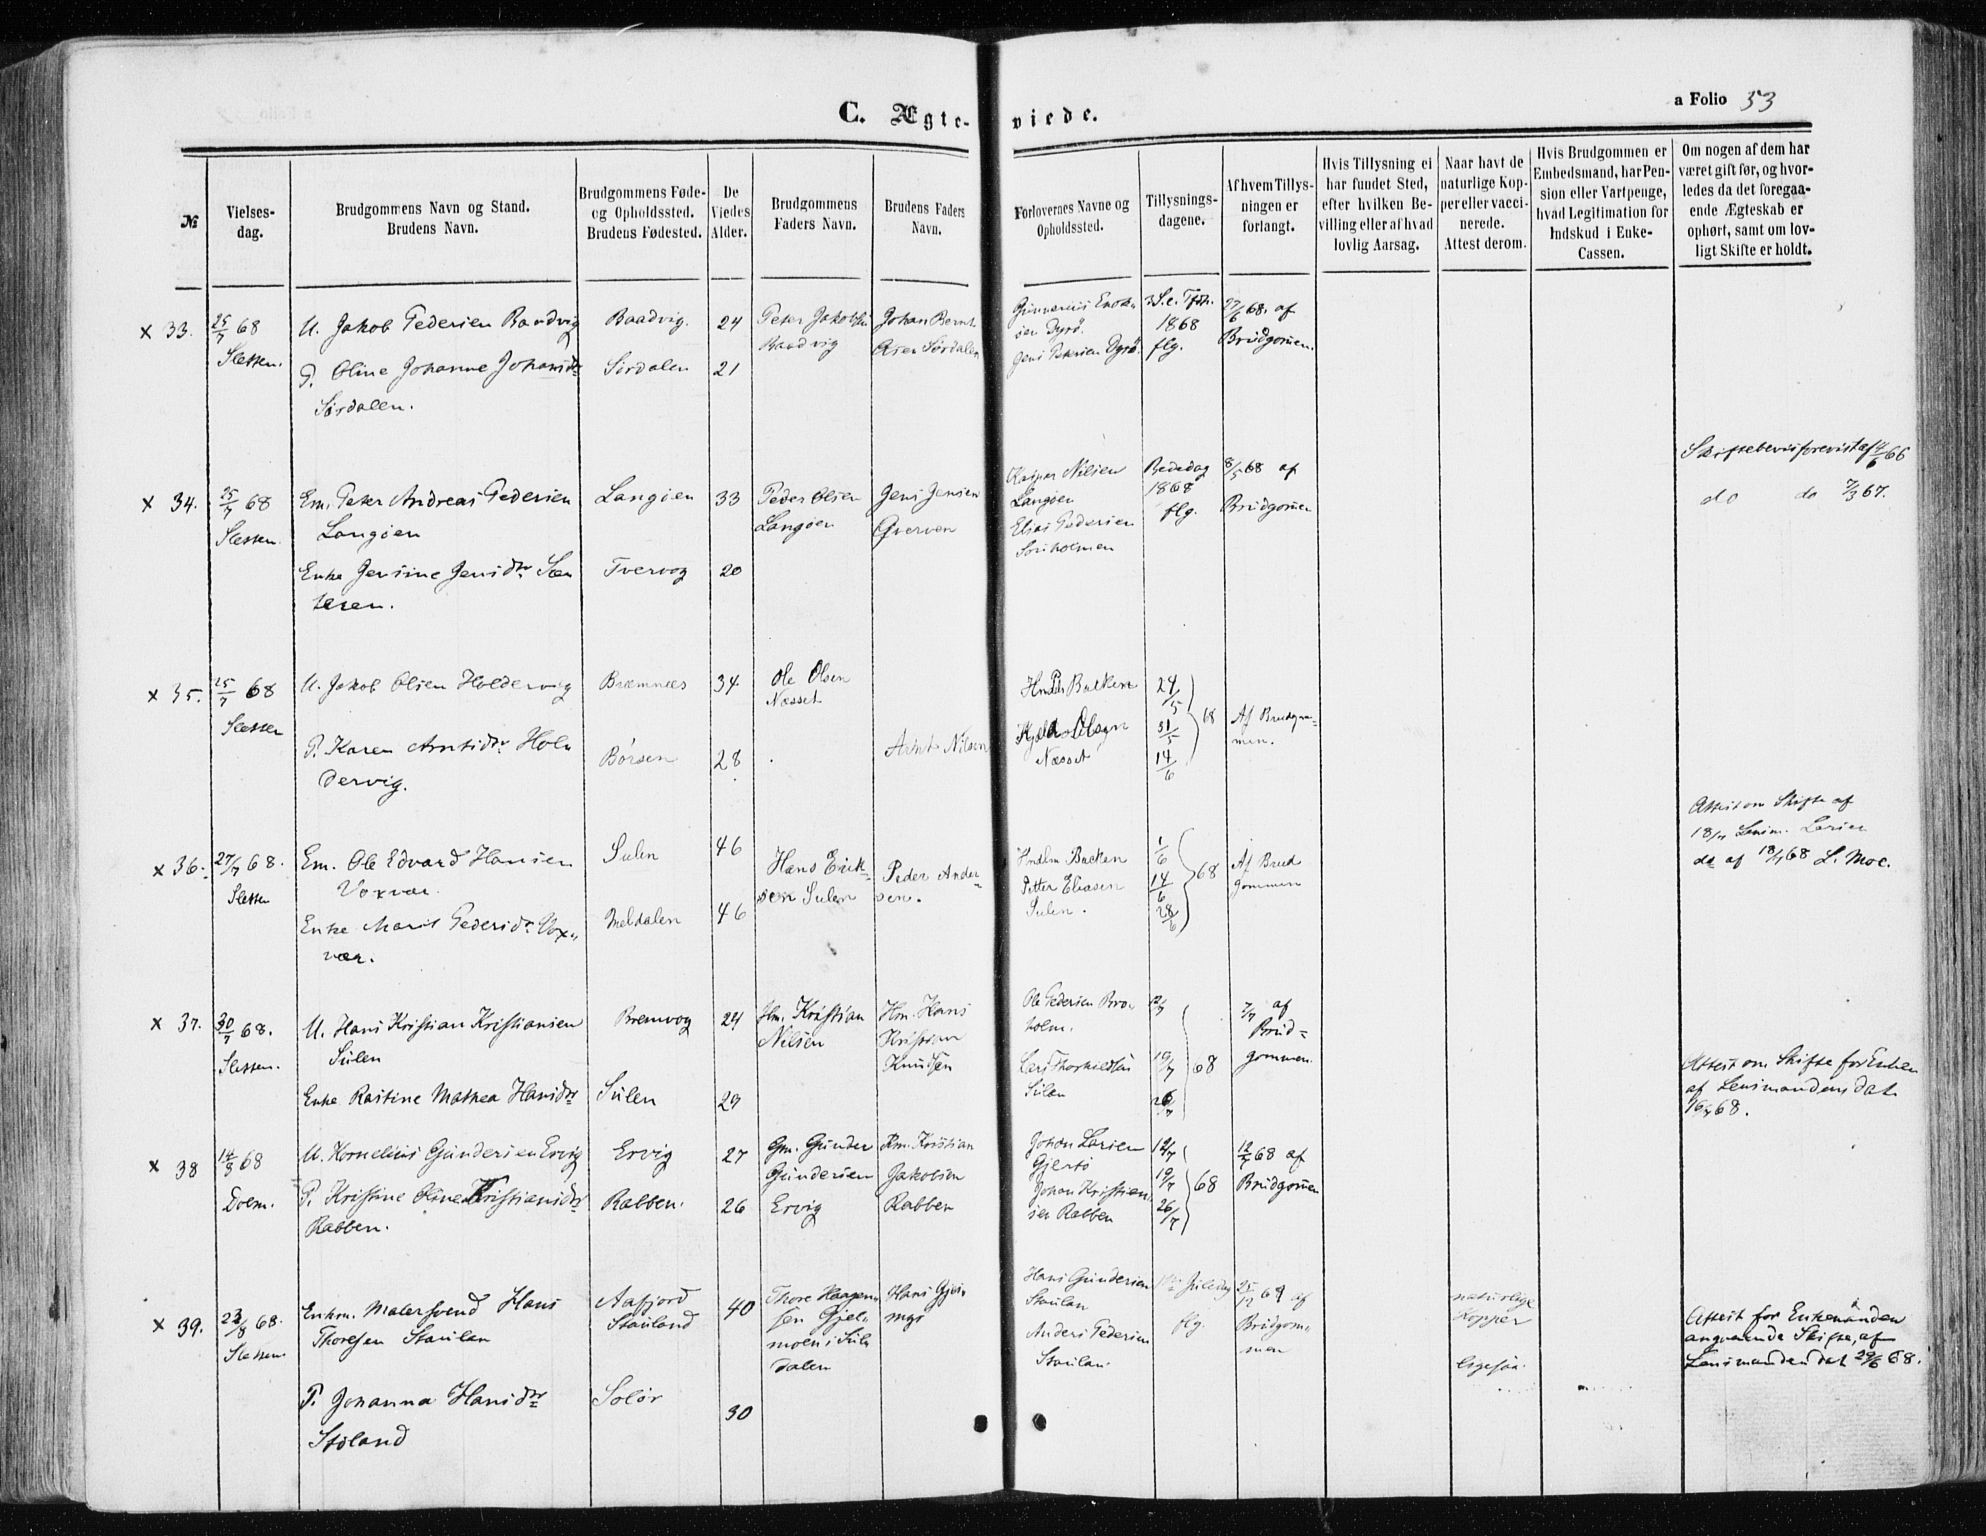 a Folio 53
C. Ægte- viede.
№
Vielses-
dag.
Brudgommens Navn og Stand.
Brudens Navn.
Brudgommens Føde-
og Opholdssted.
Brudens Fødested.
De
Viedes
Alder.
Brudgommens
Faders Navn.
Brudens Faders
Navn.
Forlovernes Navne og
Opholdssted.
Tillysnings-
dagene.
Af hvem Tillys-
ningen er
forlangt.
Hvis Tillysning ei
har fundet Sted,
efter hvilken Be-
villing eller af hvad
lovlig Aarsag.
Naar havt de
naturlige Kop-
per eller vacci-
nerede.
Attest derom.
Hvis Brudgommen er
Embedsmand, har Pen-
sion eller Vartpenge,
hvad Legitimation for
Indskud i Enke-
Cassen.
Om nogen af dem har
været gift før, og hvor-
ledes da det foregaa-
ende Ægteskab er
ophørt, samt om lov-
ligt Skifte er holdt.
x 33.
25/7 68
Sletten.
U. Jakob Pedersen Baadvig
P. Oline Johanne Johansdr
Sørdalen.
Baadvig.
Sørdalen
24
21
Peter Jakobsen
Baadvig
Johan Bernt
Olsen Sørdalen
Gunnerius Enok-
sen Dyrø.
Jens Petersen Dyrø.
3 S. e. Tfst.
1868
flg.
27/6 68. af
Brudgomen.
x 34.
25/7 68
Sletten.
Em. Peter Andreas Pedersen
Langøen
Enke Jensine Jensdr Sæ-
teren.
Langøen
Tvervog
33
20
Peder Olsen
Langøen
Jens Jensen
Qverven
Kasper Nilsen
Langøen
Elias Pedersen
Bededag
1868
flg.
8/5 68 af
Brudgomen
Skiftebevis forevist af 4/6 66
do do 7/3 67.
x 35.
25/7 68
Sletten
U. Jakob Olsen Holdervig
P. Karen Arntsdr Hol-
dervig.
Bræmnæs
Børsen
34
28
Ole Olsen
Næsset
Arnt Nilsen
Bakken
Olsen
Næsset
24/5
31/5
14/6
68
Af Brudgom-
men.
x 36.
27/7 68.
Sletten
Em. Ole Edvard Hansen
Voxvær.
Enke Marit Pedersdr. Vox-
vær.
Sulen
Meldalen
46
46
Hans Erik-
sen Sulen
Peder Ander-
sen.
Bakken
Petter Eliasen
Sulen.
1/6
14/6
28/6
68
Af Brud
gommen
Attest om Skifte af
18/7 Lensm. Larsen
do af 18/7 68 L. Moe.
x 37.
30/7 68.
Sletten.
U. Hans Kristian Kristiansen
Sulen
Enke Rastine Mathea Hansdr
Bremvog
Sulen
24
29
Hm. Kristian
Nilsen
Hm. Hans
Kristian
Knudsen
Ole Pedersen Bro-
holm.
Carl Thorkildsen
Sulen
12/7
19/7
26/7
68
7/7 af
Brud-
gommen.
Attest om Skifte for Enken
af Lensmanden dat
16/7 68.
x 38
14/8 68
Dolm.
U. Kornelius Gundersen Ervig
P. Kristine Oline Kristiansdr
Rabben.
Ervig
Rabben.
27
26
Gm. Gunder
Gundersen
Ervig
Km. Kristian
Jakobsen
Rabben
Johan Larsen
Gjertø
Johan Kristian-
sen Rabben
12/7
19/7
26/7
68
12/7 68 af
Brudgomen
x 39.
23/8 68.
Sletten.
Enkm. Malersvend Hans
Thoresen Staulan
P. Johanna Hansdr
Støland
Aafjord
Stauland
Solør
40
30
Thore Haagen-
sen Gjel-
moen i Sul-
dalen
Hans Gjes-
mgs
Hans Gundersen
Staulan
Anders Pedersen
Staulan.
1ste Juledag
flg.
25/12 69 af
Brudgom-
men
naturlige
Kopper
ligesaa.
Attest for Enkemanden
angaaende Skifte, af
Lensmanden dat 29/6 68.